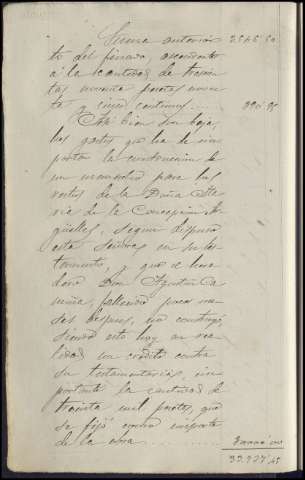 Suma anterior 2546 50
to del finado, ascendente
á la cantidad de trescien
tas noventa pesetas noven
ta y cinco centimos.... 390 95
Tambien son baja,
los gastos que ha de im
portar la construccion de
un mausoleo para los
restos de la Doña Ma
ria de la Concepcion Ar
güelles, segun dispuso
esta señora en su tes
tamento, y que el here
dero Don Agustin Ca
falleciendo pocos me
ses despues, no construyó,
siendo esto hoy en rea
lidad un crédito contra
su testamentaria, im
portante la cantidad de
treinta mil pesetas, que
se fijó como importe
de la obra ........ 30000 00
32.937 45